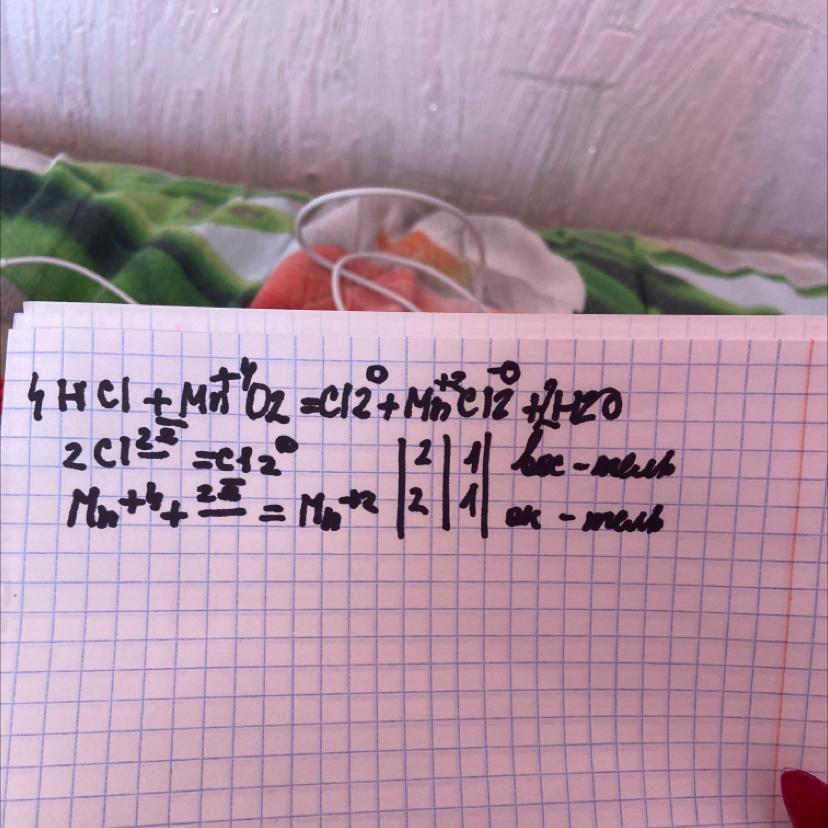 4HCl + Mn+4O2 = Cl2 0 + Mn+2Cl2 -0 + 2H2O
2Cl 2ē = Cl2 0 | 2 | 1 | вос-тель
Mn+4 + 2ē = Mn+2 | 2 | 1 | ок-тель